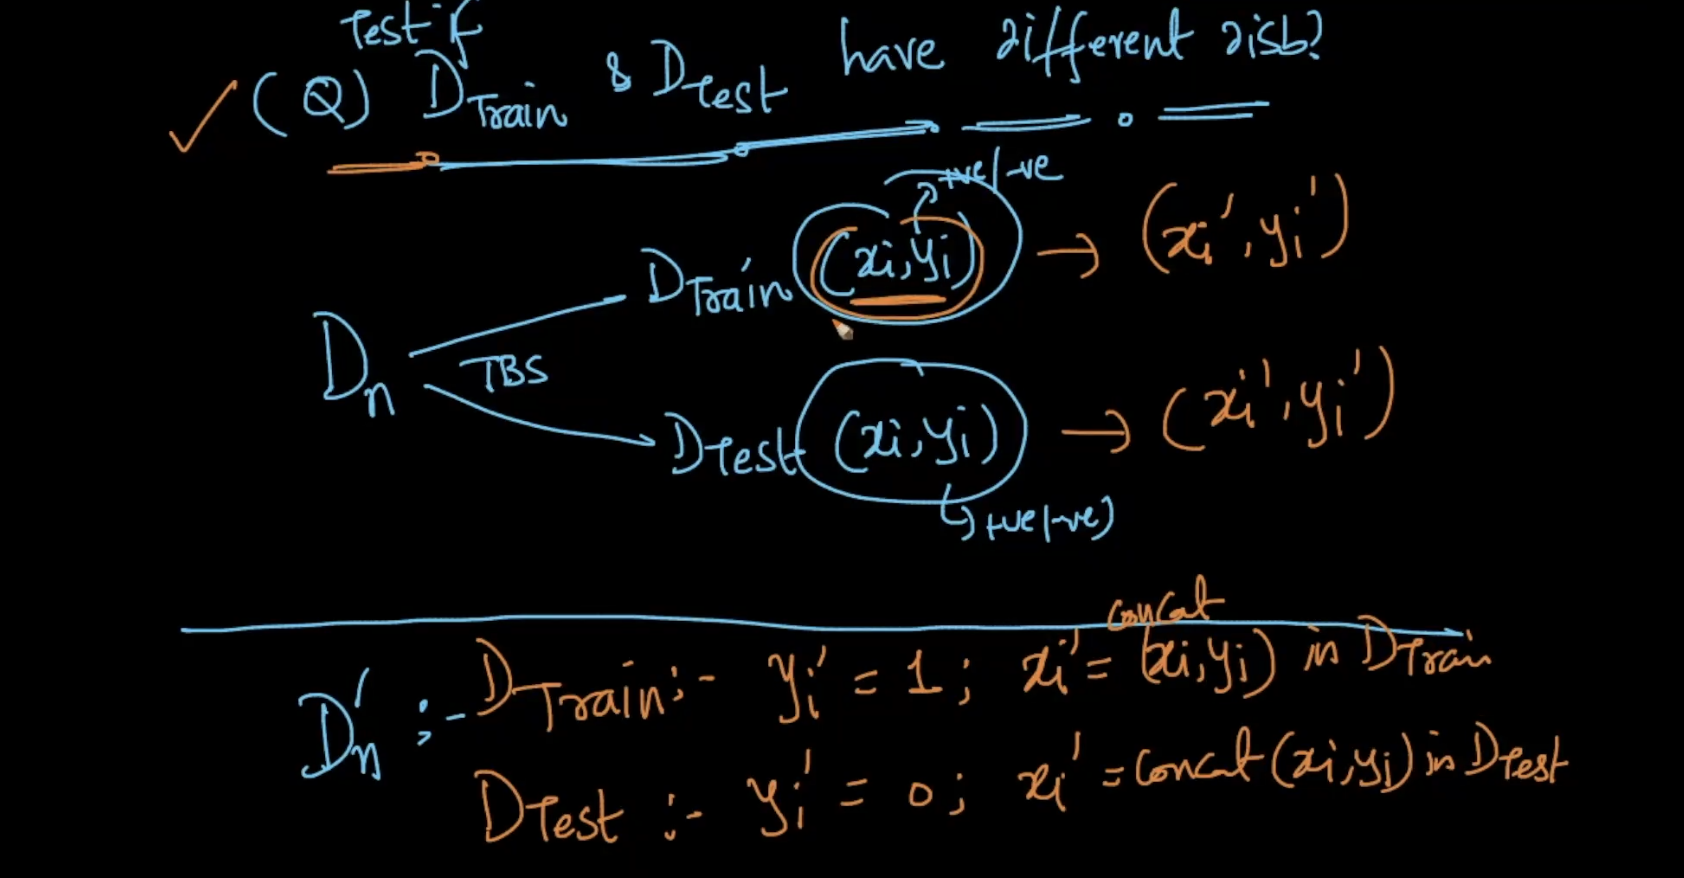 Test if
(Q) DTrain & DTest have different disb?
+ve/-ve
DTrain (xi,yi) → (xi',yi')
Dn
TBS
DTest (xi,yi) → (xi',yi')
+ve(-ve)
concat
Dn' :- DTrain:- yi' = 1; xi' = (xi,yi) in DTrain
DTest :- yi' = 0; xi' = concat (xi,yi) in DTest